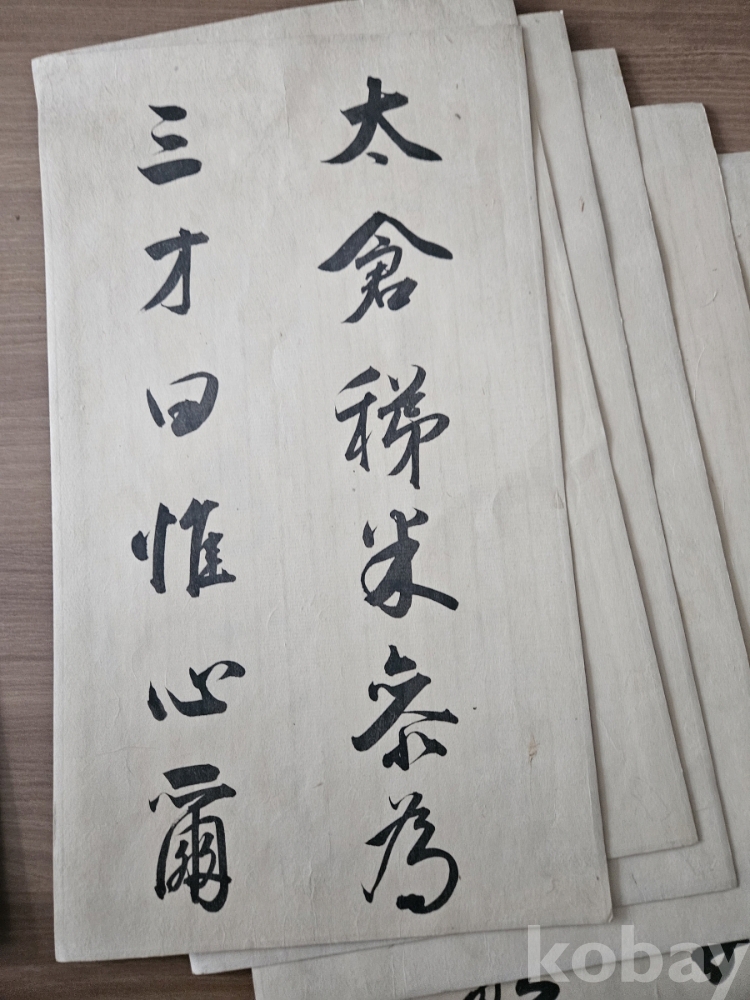 太倉稊米叅為
三才曰惟心爾
kobay